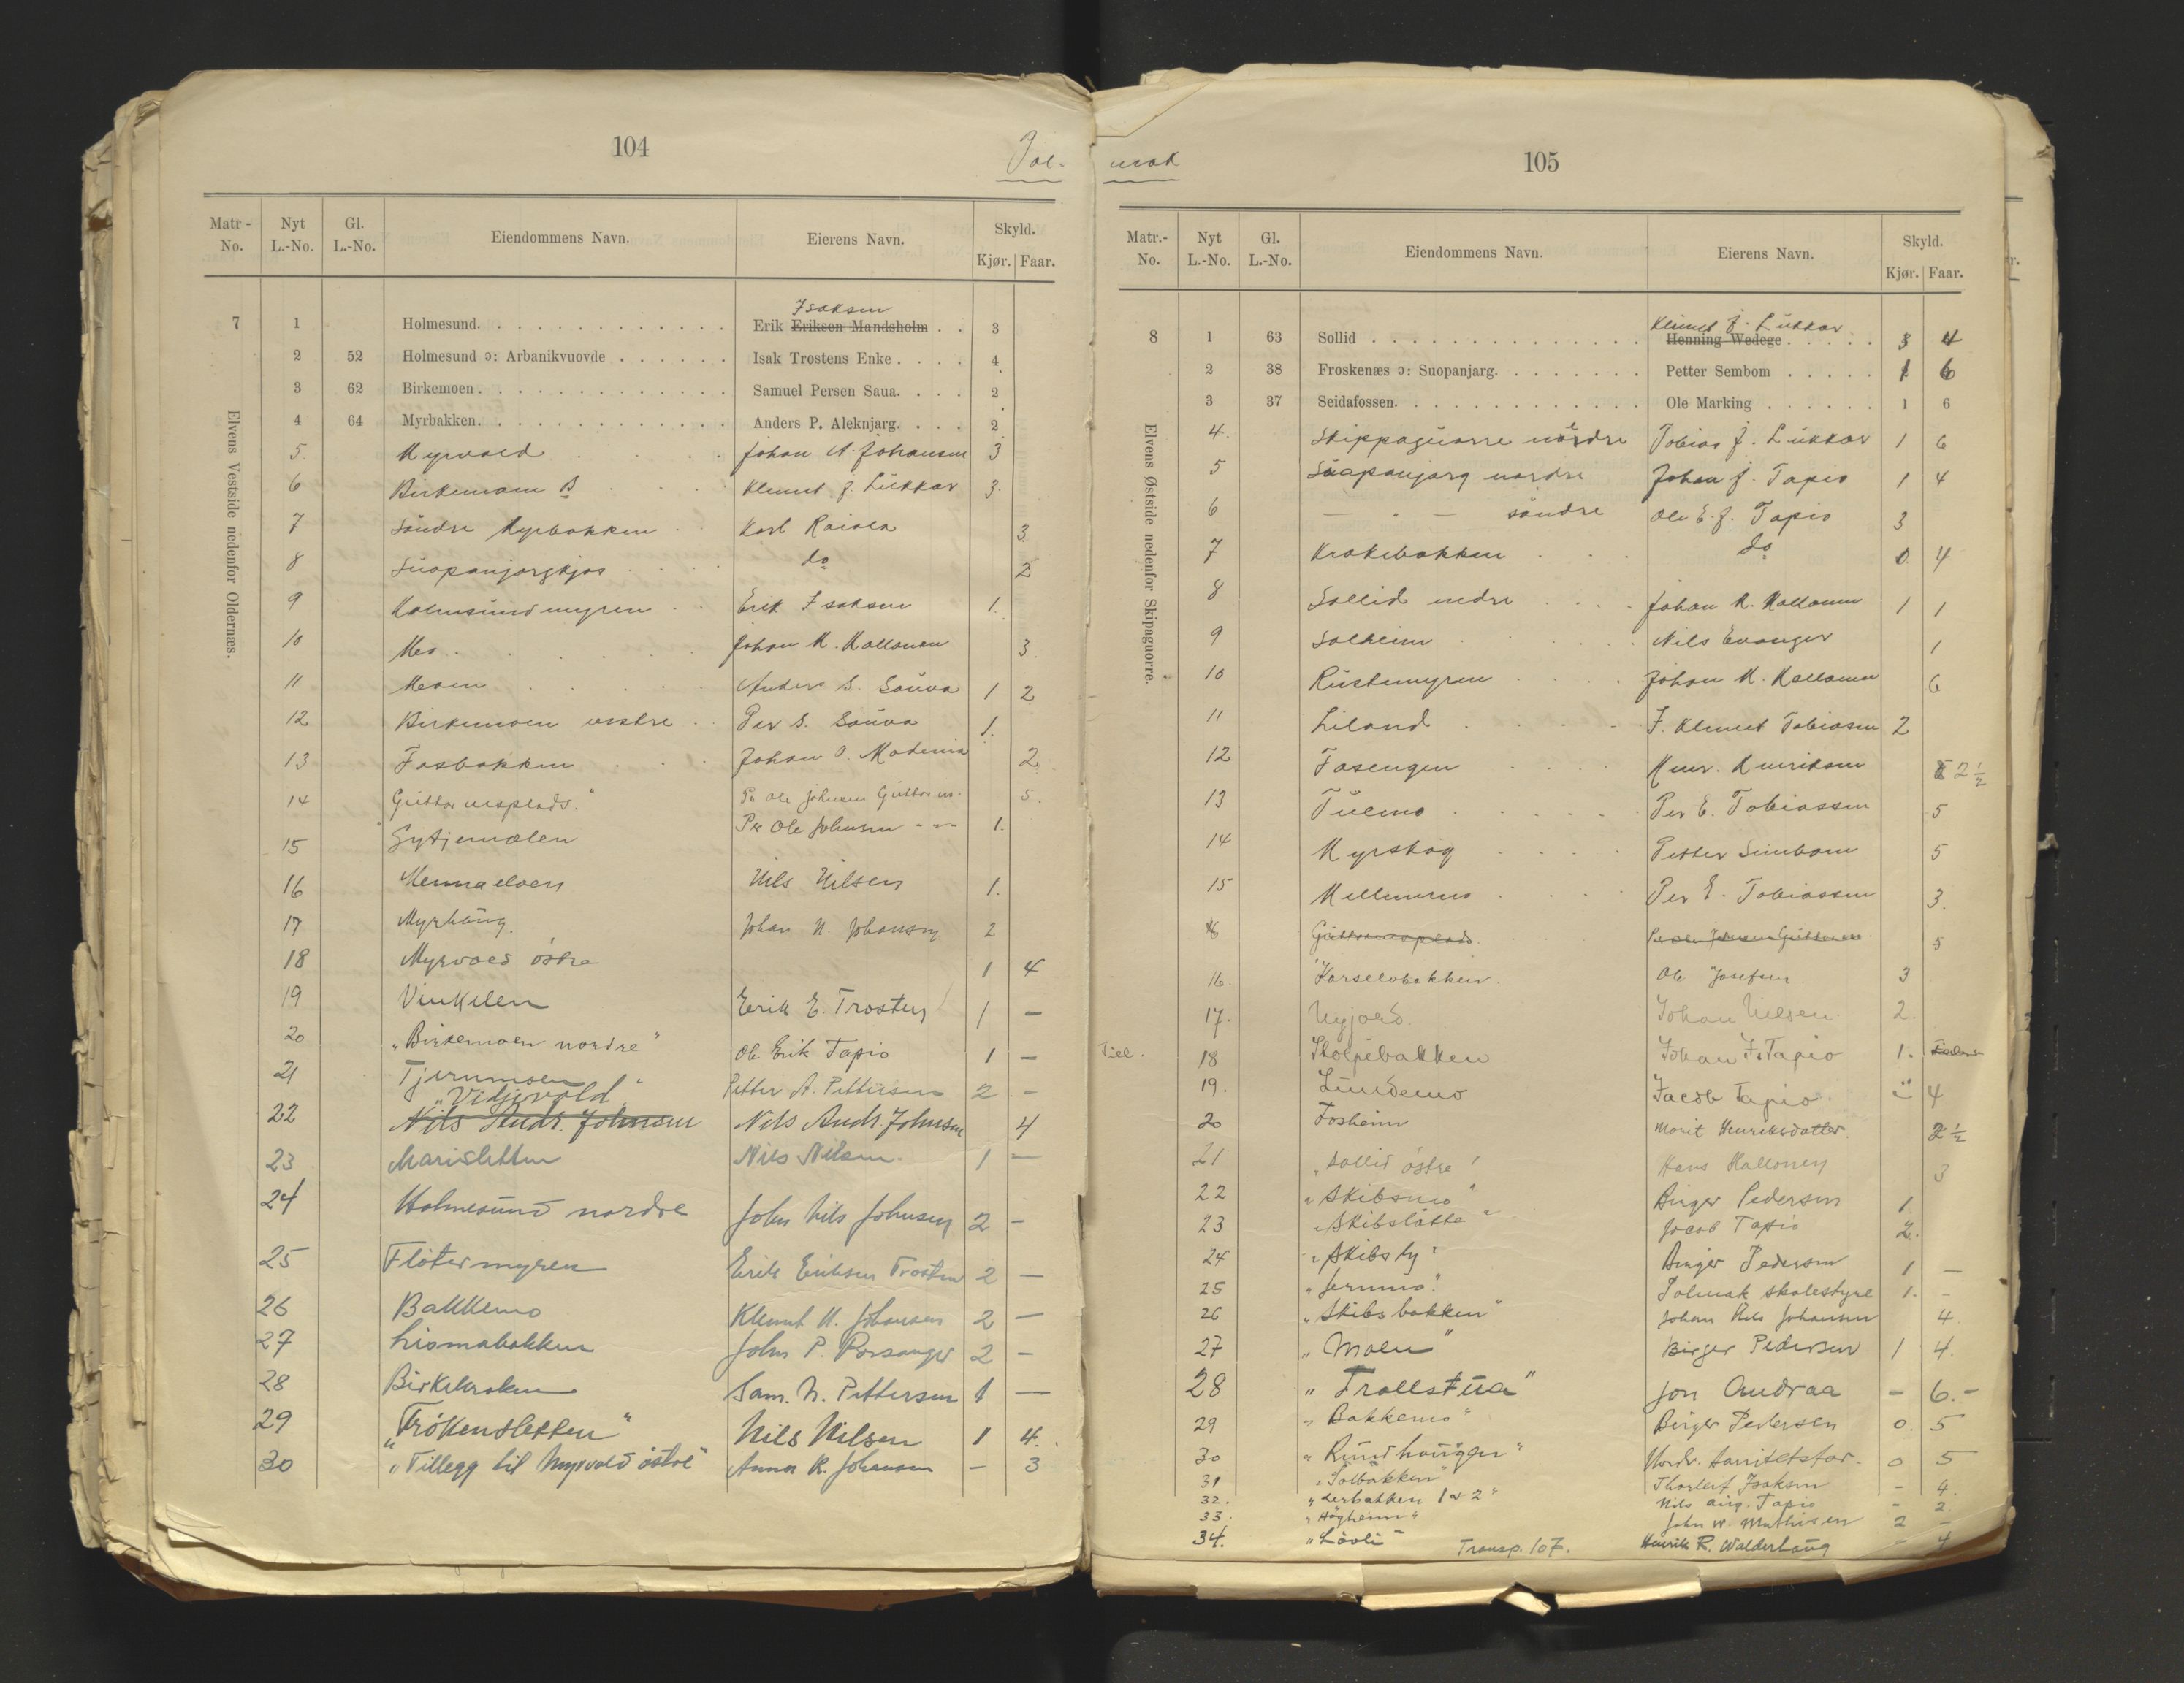 104
Pol-
Matr-No. Nyt L.-No. Gl. L.-No. Eiendommens Navn. Eierens Navn. Skyld. Kjør. Faar.
Elvens Vestside nedenfor Oldernæs.
Isaksen
7 1 Holmesund. Erik Eriksen Mandsholm 3
2 52 Holmesund ɔ: Arbanikvuovde Isak Trostens Enke 4
3 62 Birkemoen. Samuel Persen Saua. 2
4 64 Myrbakken. Anders P. Aleknjarg. 2
5 Myrvold Johan N. Johansen 3
6 Birkemoen B Klemet J. Lukkar 3.
7 Søndre Myrbakken Karl Raiola 3
8 Suopanjargkjos do 2
9 Holmesundmyren Erik Isaksen 1.
10 Mo Johan K. Hallonen 3
11 Moen Anders S. Sauva 1 2
12 Birkemoen vestre Per S. Sauva 1.
13 Fosbakken Johan O. 2
14 Guttormsplads. Pr Ole Johnsen Guttorm. 5.
15 Gytjemælen Pr Ole Johnsen -"- 1.
16 Mennaelven Nils Nilsen 1.
17 Myrhaug. Johan N. Johansen 2
18 Myrvold östre 1 4
19 Vinkelen Erik E. Trosten 1 —
20 "Birkemoen nordre" Ole Erik Tapio 1 —
21 Tjernmoen Petter A. Pettersen 2 -
"Vidjevold"
22 Nils Andr. Johnsen Nils Andr. Johnsen 4
23 Marisletten Nils Nilsen. 1 —
24 Holmesund nordre John Nils Johnsen 2 -
25 Flötermyren Erik Eriksen Trosten 2 —
26 Bakkemo Klemet N. Johansen 2 —
27 Lismabakken John P. Porsanger 2 -
28 Birkekroken Sam. N. Pettersen 1 —
29 "Frökensletten" Nils Nilsen 1 4.
30 "Tillegg til Myrvold östre" Anna K. Johansen — 3
mak
105
Matr.-No. Nyt L.-No. Gl. L.-No. Eiendommens Navn. Eierens Navn. Skyld. Kjør. Faar.
Elvens Østside nedenfor Skipaguorre.
Klemet J. Lukkar
8 1 63 Sollid Henning Wedege 3 4
2 38 Froskenæs ɔ: Suopanjarg. Petter Sembom 1 6
3 37 Seidafossen. Ole Marking 1 6
4. Skippaguorre nordre Tobias J. Lukkar 1 6
5 Suapanjarg nordre Johan J. Tapio 1 4
6 — " — søndre Ole E. J. Tapio 3
7 Krokebakken do 0 4
8 Sollid nedre Johan K. Hallonen 1 1
9 Solheim Nils Evanger 1
10 Rustemyren Johan K. Hallonen 6
11 Liland J. Klemet Tobiasen 2
12 Fosengen Henr. Henriksen 2 1/2
13 Tuemo Per E. Tobiassen 5
14 Myrskog Petter Simbom 5
15 Mellemmo Per E. Tobiassen 3.
Guttormsplads. Per Ole Johnsen Guttormsen 5
16. Karselvbakken. Ole Josefsen 3
17. Nyjord. Johan Nilsen. 2.
18 Stolpebakken Johan J. Tapio 1.
19. Lundemo Jacob Tapio 4
20 Fosheim Marit Henriksdatter. 2 1/2
21 "Sollid östre" Hans Hallonen 3
22 "Skibsmo" Birger Pedersen 1
23 "Skibslätta" Jacob Tapio 2.
24 "Skibsly" Birger Pedersen 1 —
25 "Jernmo." Polmak skolestyre 1. -
26 "Skibsbakken" Johan Nils Johansen 4
27 "Moen" Birger Pedersen 1 4.
28 "Trollstua" Jon Andraa — 6.-
29 "Bakkemo" Birger Pedersen 0. 5
30 "Rundhaugen" Nordr. Sanitetsfor. 0 5
31 "Solbakken" Thorleif Isaksen - 4.
32. "Lerbakken 1 & 2" Nils Aug. Tapio - 2.
33. "Høgheim" John M. Mathisen 2 -
34. "Lövli" Transp. 107. Henrik R. Walderhaug - 4